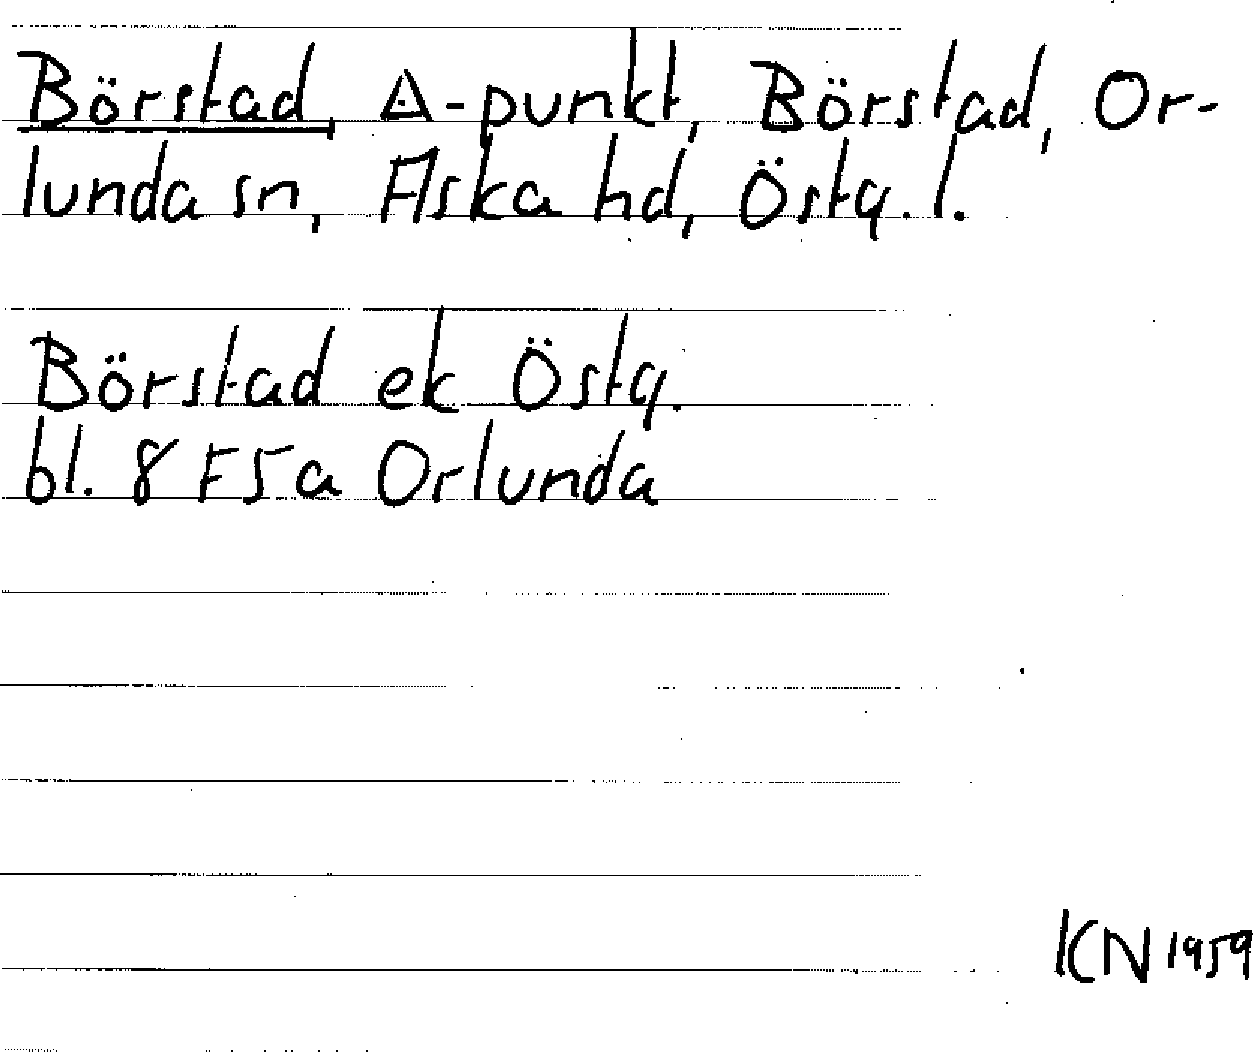 Börstad, △-punkt, Börstad, Or-
lunda sn, Aska hd, Östg. l.
Börstad ek Östg.
bl. 8 F5a Orlunda
KN 1959